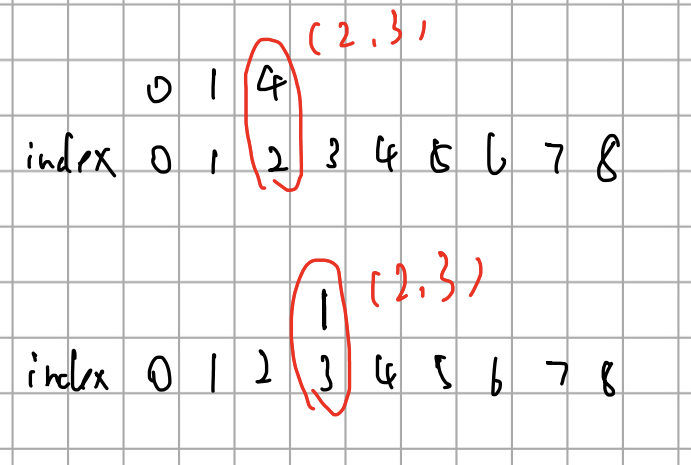 (2,3)
0 1 4
index 0 1 2 3 4 5 6 7 8
1 (2,3)
index 0 1 2 3 4 5 6 7 8